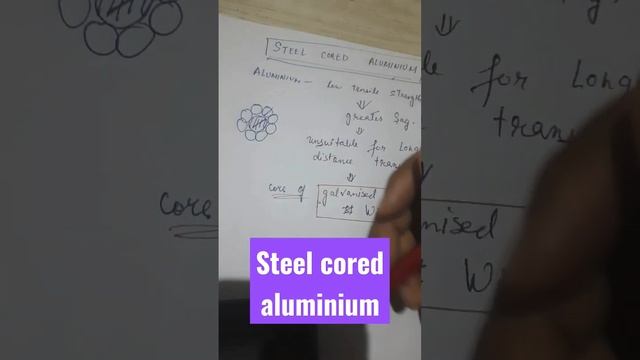 STEEL CORED ALUMINIUM
ALUMINIUM - low tensile strength
⇓
greater Sag.
⇓
unsuitable for Long
distance trans
⇓
core of galvanised
st W
Steel cored
aluminium